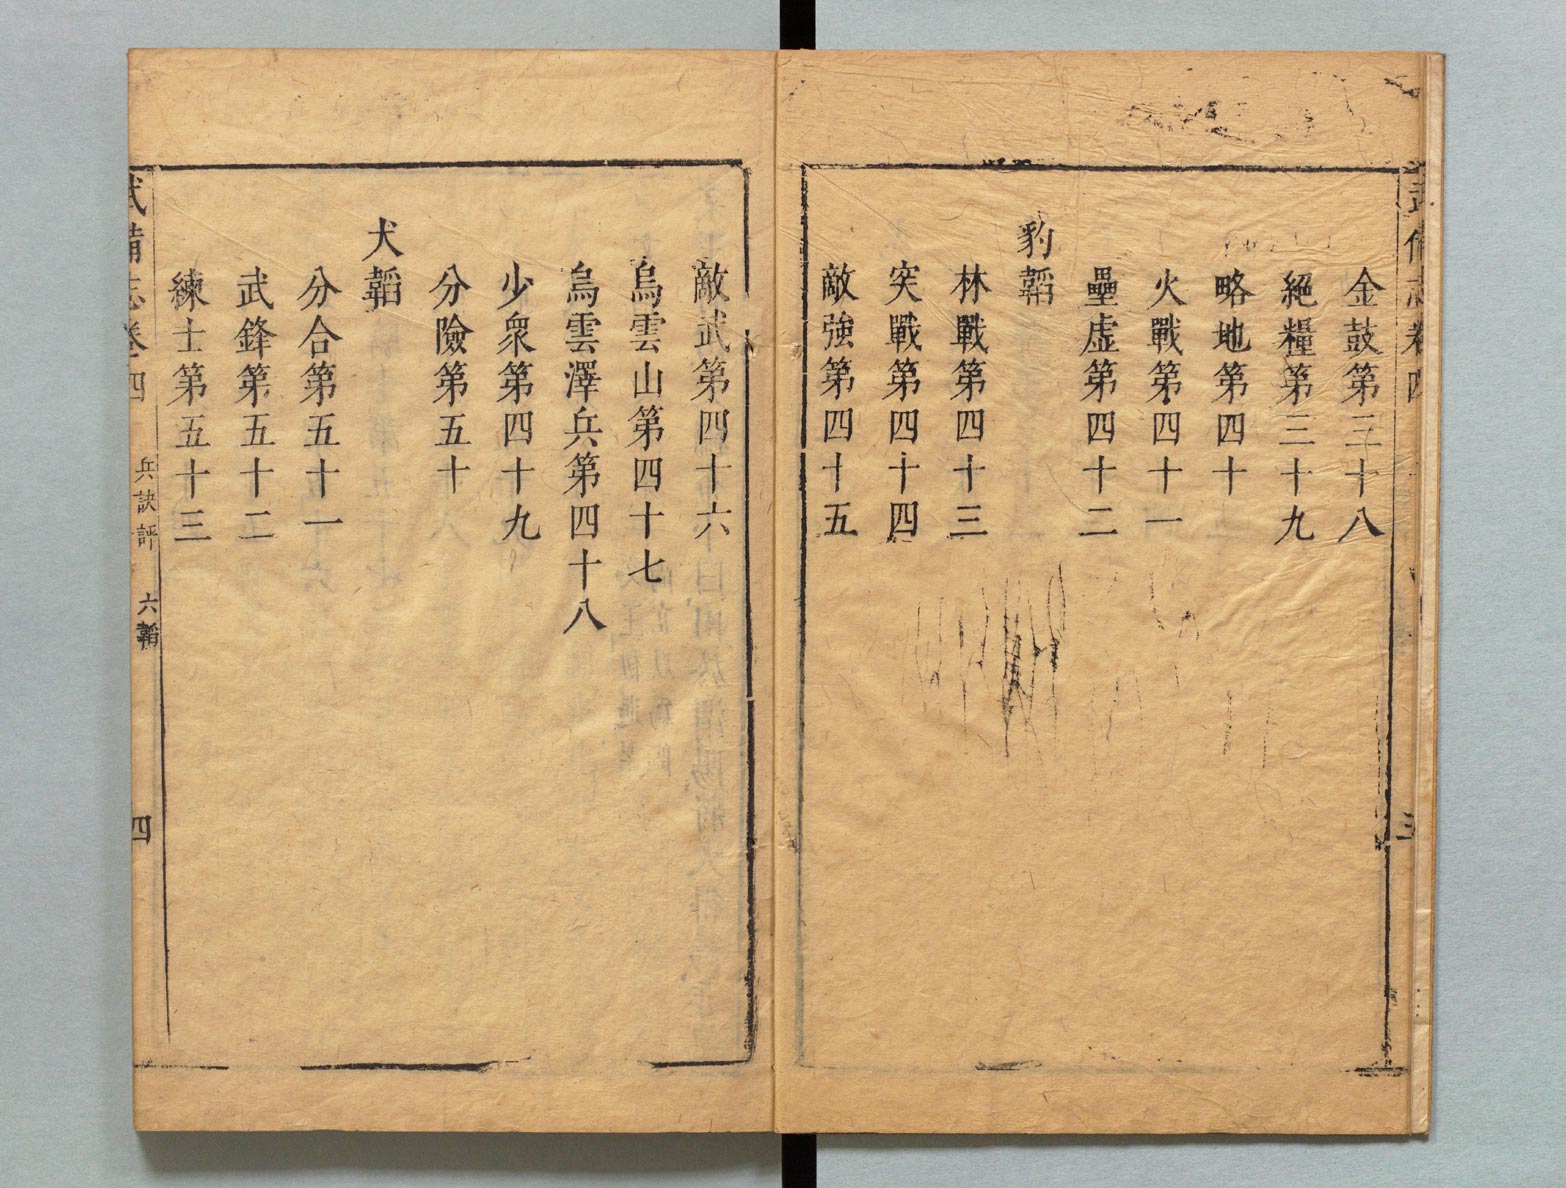 武備志卷四
三
金鼓第三十八
絕糧第三十九
略地第四十
火戰第四十一
壘虛第四十二
豹韜
林戰第四十三
突戰第四十四
敵強第四十五
敵武第四十六
烏雲山第四十七
烏雲澤兵第四十八
少衆第四十九
分險第五十
犬韜
分合第五十一
武鋒第五十二
練士第五十三
武備志卷四 兵訣評 六韜
四